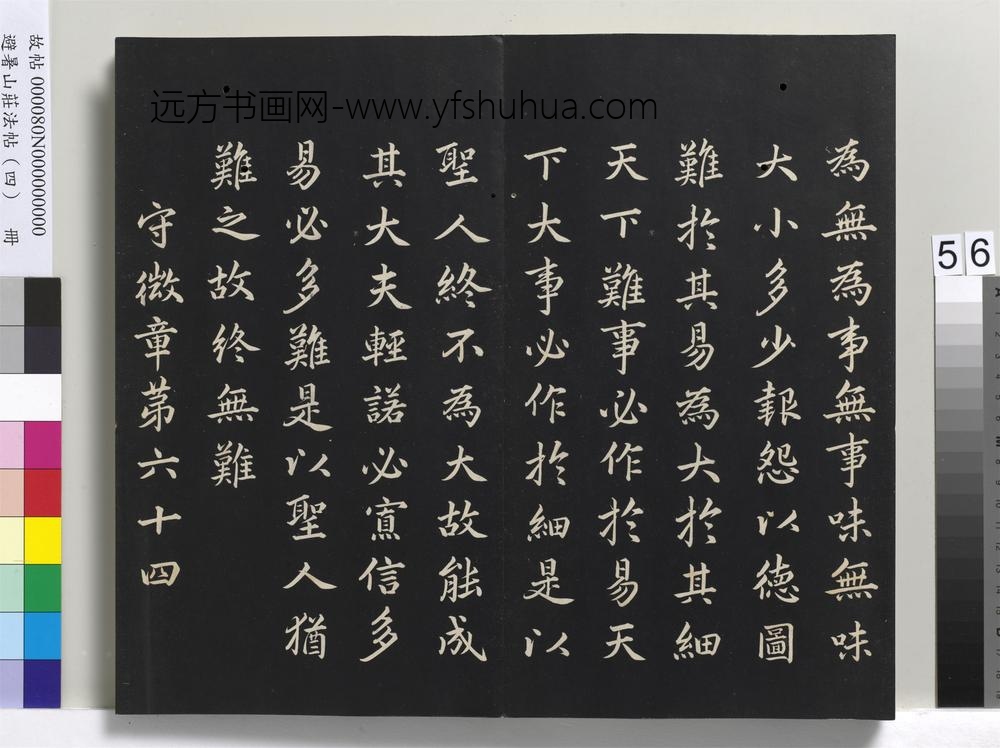 為無為事無事味無味
大小多少報怨以德圖
難於其易為大於其細
天下難事必作於易天
下大事必作於細是以
聖人終不為大故能成
其大夫輕諾必寡信多
易必多難是以聖人猶
難之故終無難
守微章第六十四
远方书画网-www.yfshuhua.com
故帖000080N000000000
避暑山莊法帖（四） 冊
56